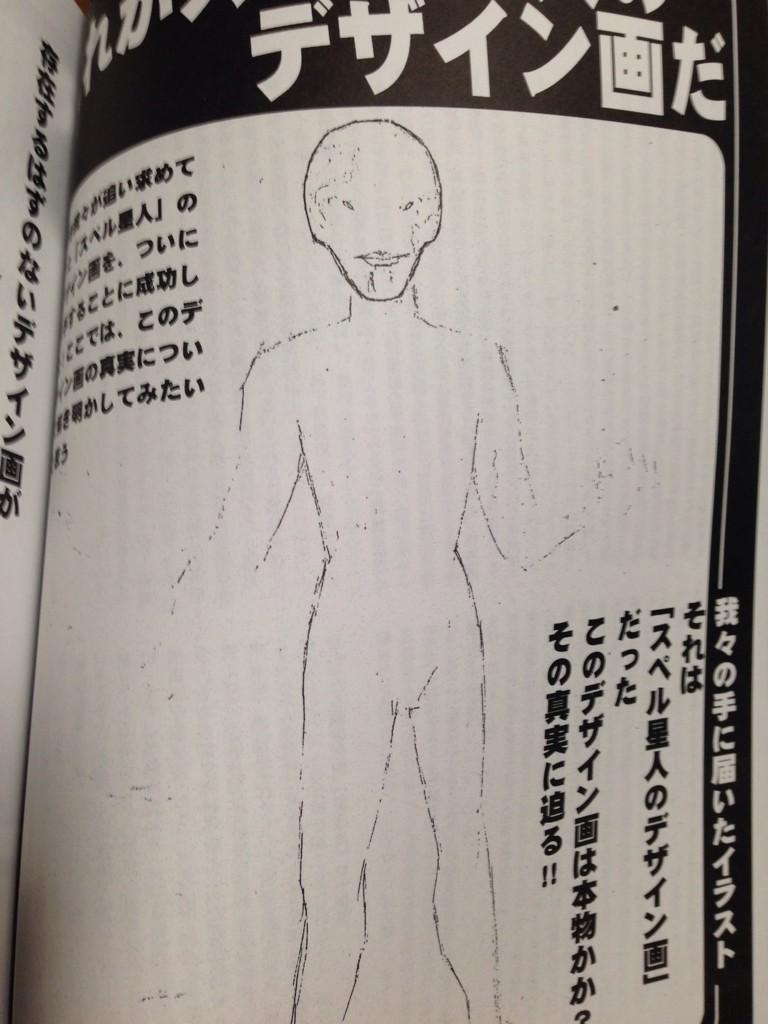 デザイン画だ
我々の手に届いたイラスト
それは
「スペル星人のデザイン画」
だった
このデザイン画は本物かか?
その真実に迫る!!
々が追い求めて
「スペル星人」の
イン画を、ついに
することに成功し
ここでは、このデ
イン画の真実につい
き明かしてみたい
存在するはずのないデザイン画が